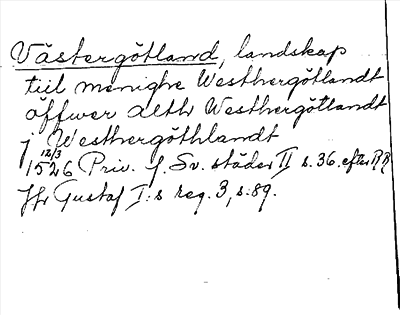 Västergötland, landskap
till menighe Westhergötlandt
offwer alth Westhergötlandt
J Westhergöthlandt
12/3 1526 Priv. f. Sv. städer II s. 36. efter RR
Jfr Gustaf I:s reg. 3, s. 89.